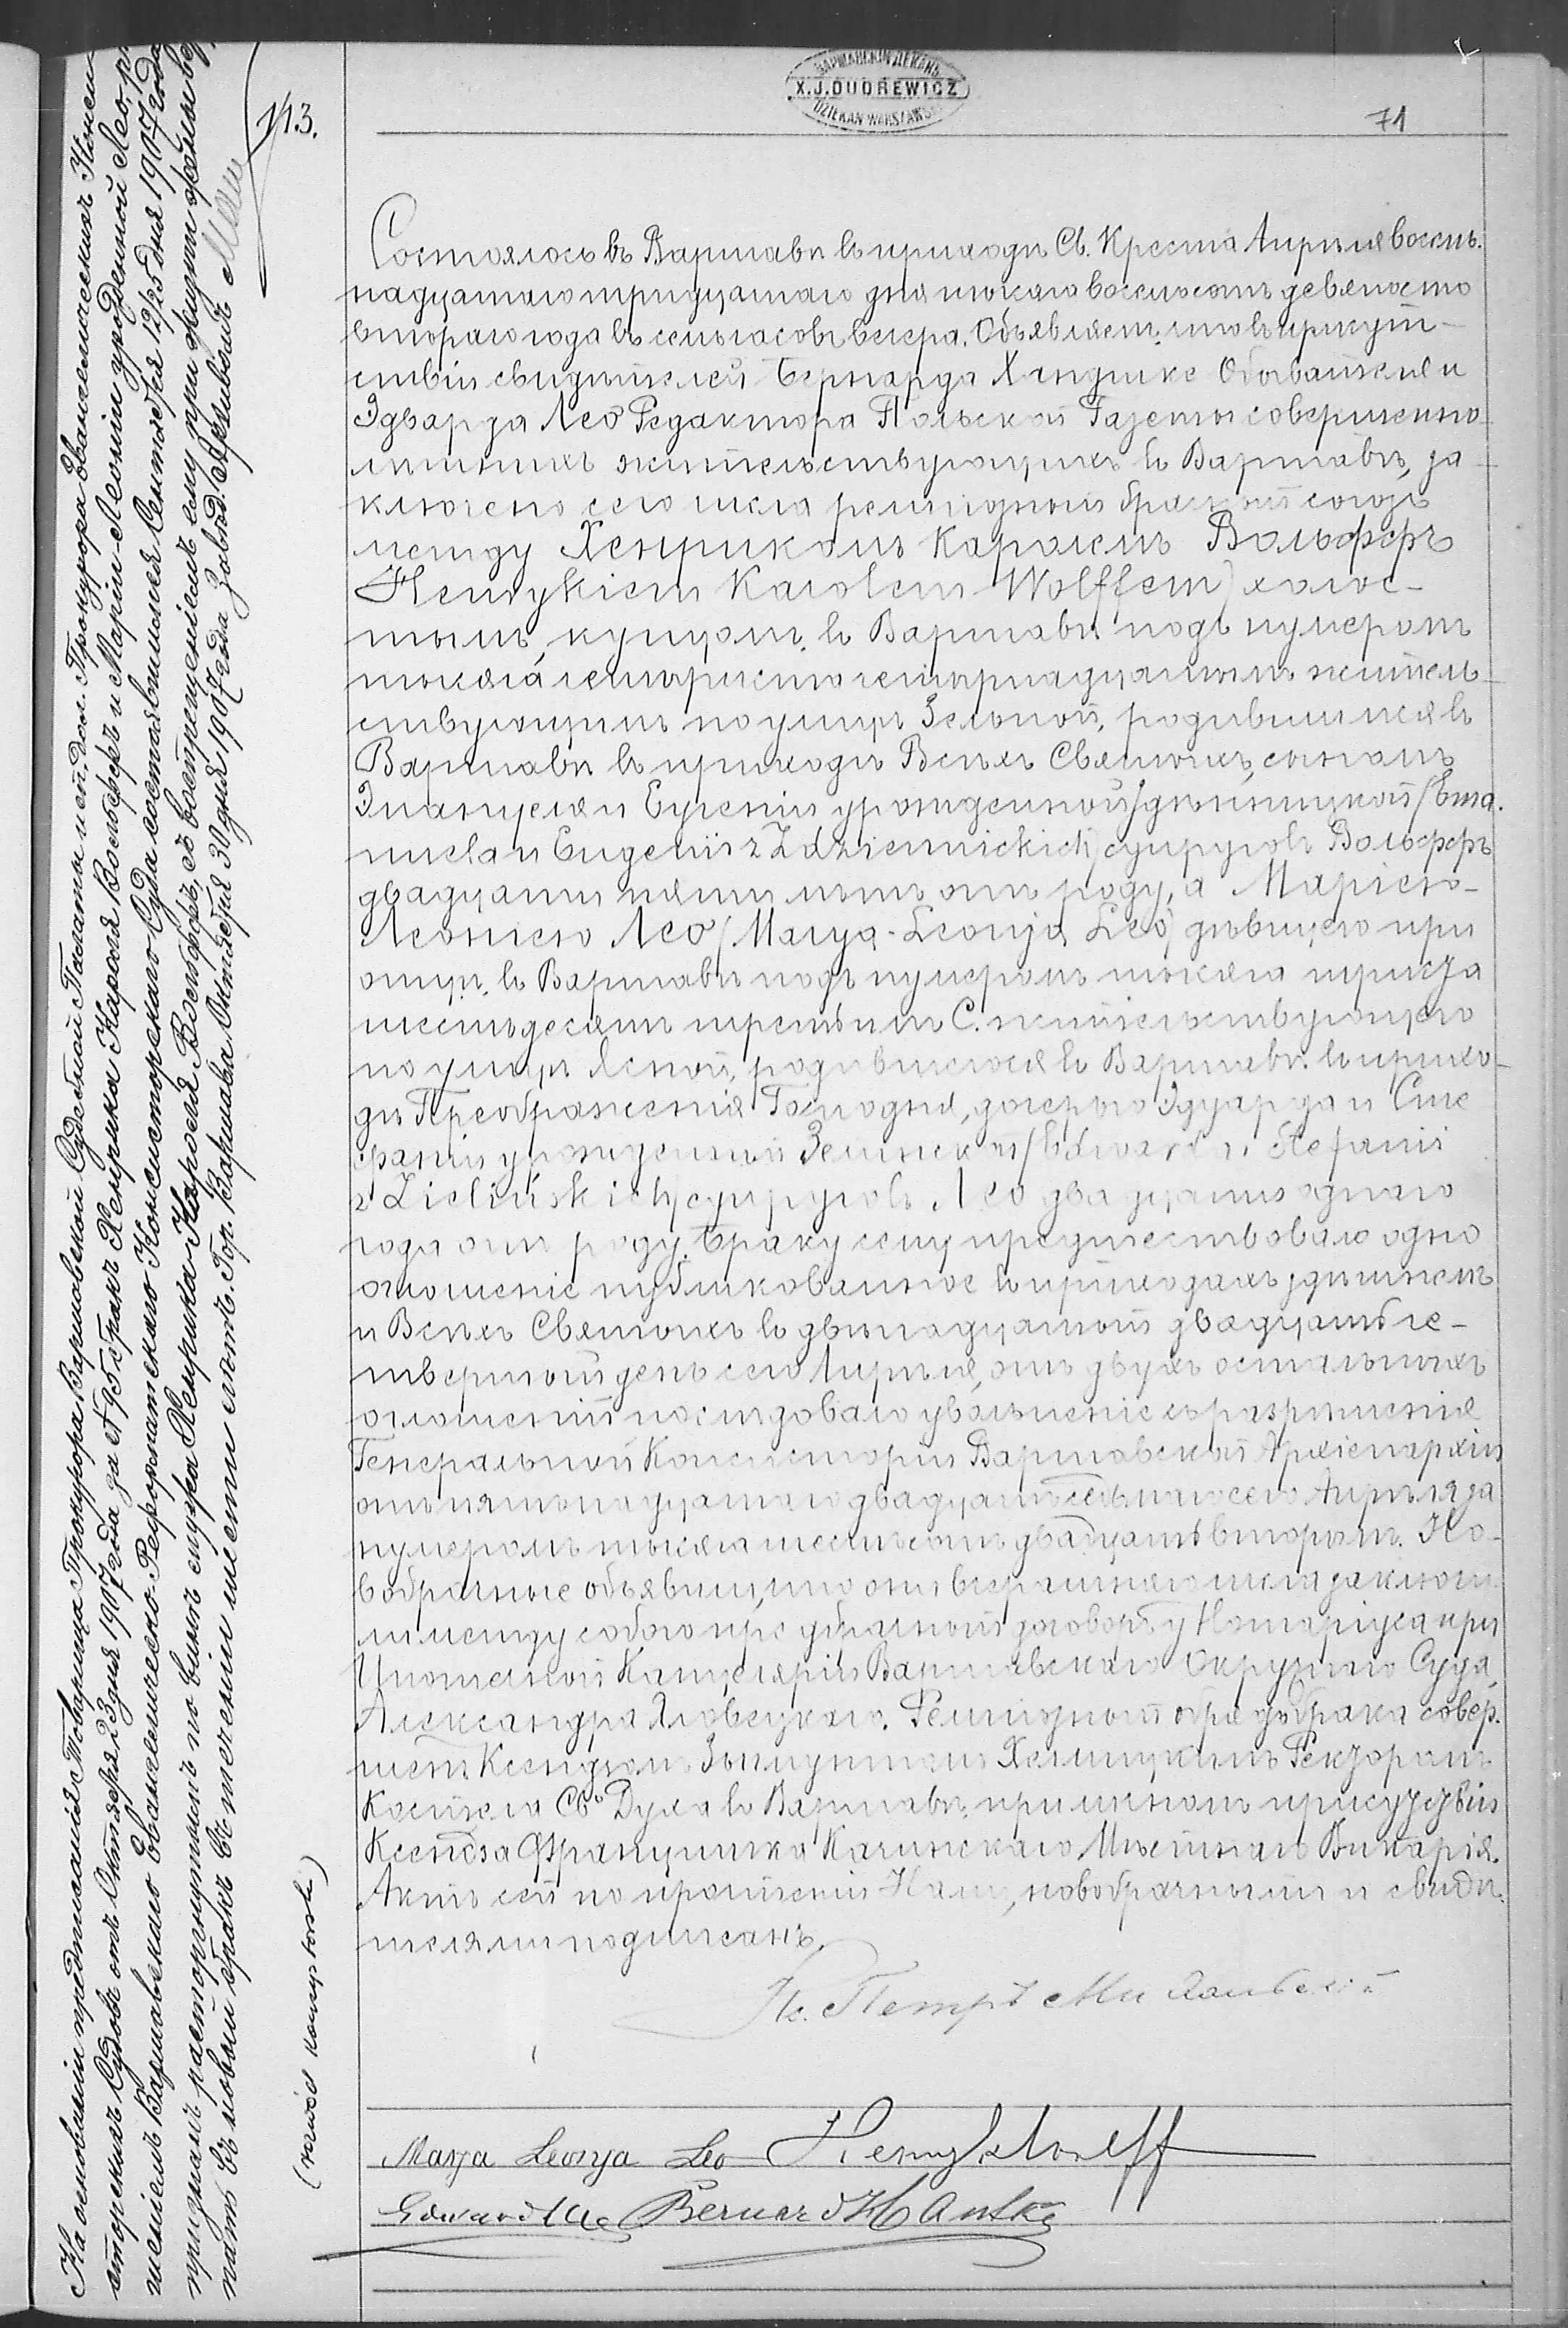 ВАРШАВСКІЙ ДЕКАНЪ
X. J. DUDREWICZ
DZIEKAN WARSZAWSKI
71
143.
Состоялось въ Варшавѣ въ приходѣ Св. Креста Апрѣля восем-
надцатаго тридцатаго дня тысяча восемьсотъ девяносто
втораго года въ семь часовъ вечера. Объявляемъ, что въ присут-
ствіи свидѣтелей Бернарда Хандтке Обывателя и
Эдварда Лео Редактора Польской Газеты совершенно-
лѣтнихъ жительствующихъ въ Варшавѣ, за-
ключено сего числа религіозный брачный союзъ
между Хенрикомъ Каролемъ Вольффъ
Henrykiem Karolem Wolffem) холос-
тымъ, купцомъ, въ Варшавѣ подъ нумеромъ
тысяча четыриста четырнадцатымъ житель-
ствующимъ по улицѣ Зельной, родившимся въ
Варшавѣ въ приходѣ Всѣхъ Святыхъ, сыномъ
Эмануеля и Евгеніи урожденной Здѣнницкой (Ema-
nuela i Eugenii z Zdziennickich) супруговъ Вольффъ
двадцати пяти лѣтъ отъ роду, а Маріею-
Леоніею Лео (Marya-Leonja Leo) дѣвицею при
отцѣ, въ Варшавѣ подъ нумеромъ тысяча триста
шестьдесятъ третьимъ С. жительствующею
по улицѣ Ясной, родившеюся въ Варшавѣ въ прихо-
дѣ Преображенія Господня, дочерью Эдуарда и Сте-
фаніи урожденной Зелинской (Edwarda i Stefanii
z Zielińskich) супруговъ Лео двадцати одного
года отъ роду. Браку сему предшествовало одно
оглашеніе публикованное въ приходахъ здѣшнемъ
и Всѣхъ Святыхъ въ двѣнадцатый двадцать че-
твертый день сего Апрѣля, отъ двухъ остальныхъ
оглашеній послѣдовало увольненіе съ разрѣшенія
Генеральной Консисторіи Варшавской Архіепархіи
отъ пятнадцатаго двадцать седьмаго сего Апрѣля за
нумеромъ тысяча шестьсотъ двадцать вторымъ. Но-
вобрачные объявили, что они вчерашняго числа заключи-
ли между собою предбрачный договоръ у Нотаріуса при
Ипотечной Канцеляріи Варшавскаго Окружнаго Суда
Александра Яловецкаго. Религіозный обрядъ брака совер-
шенъ Ксендзомъ Зыгмунтомъ Хелмицкимъ Ректоромъ
Костела Св. Духа въ Варшавѣ, при личномъ присутствіи
Ксендза Францишка Качинскаго Мѣстнаго Викарія.
Актъ сей по прочтеніи Нами, новобрачными и свидѣ-
телями подписанъ.
Кс. Петръ
Marya Leonja Leo Henryk Wolff
Edward Leo Bernard Hantke
На основаніи предписанія Товарища Прокурора Варшавской Судебной Палаты и исп. дол. Прокурора Евангелическихъ Консис-
торскихъ Судовъ отъ Октября 23 дня 1907 года за № 95 бракъ Хенрика Кароля Вольффъ и Маріи-Леоніи урожденной Лео, рѣ-
шеніемъ Варшавскаго Евангелическо-Реформатскаго Консисторскаго Суда состоявшимся Сентября 12/25 дня 1907 года
признанъ расторгнутымъ по винѣ супруга Хенрика-Кароля Вольффъ, съ воспрещеніемъ ему при жизни бывшей
въ новый бракъ въ теченіи шести лѣтъ. Гор. Варшава Октября 30 дня 1907 года Завѣд. Архивомъ
(rozwód